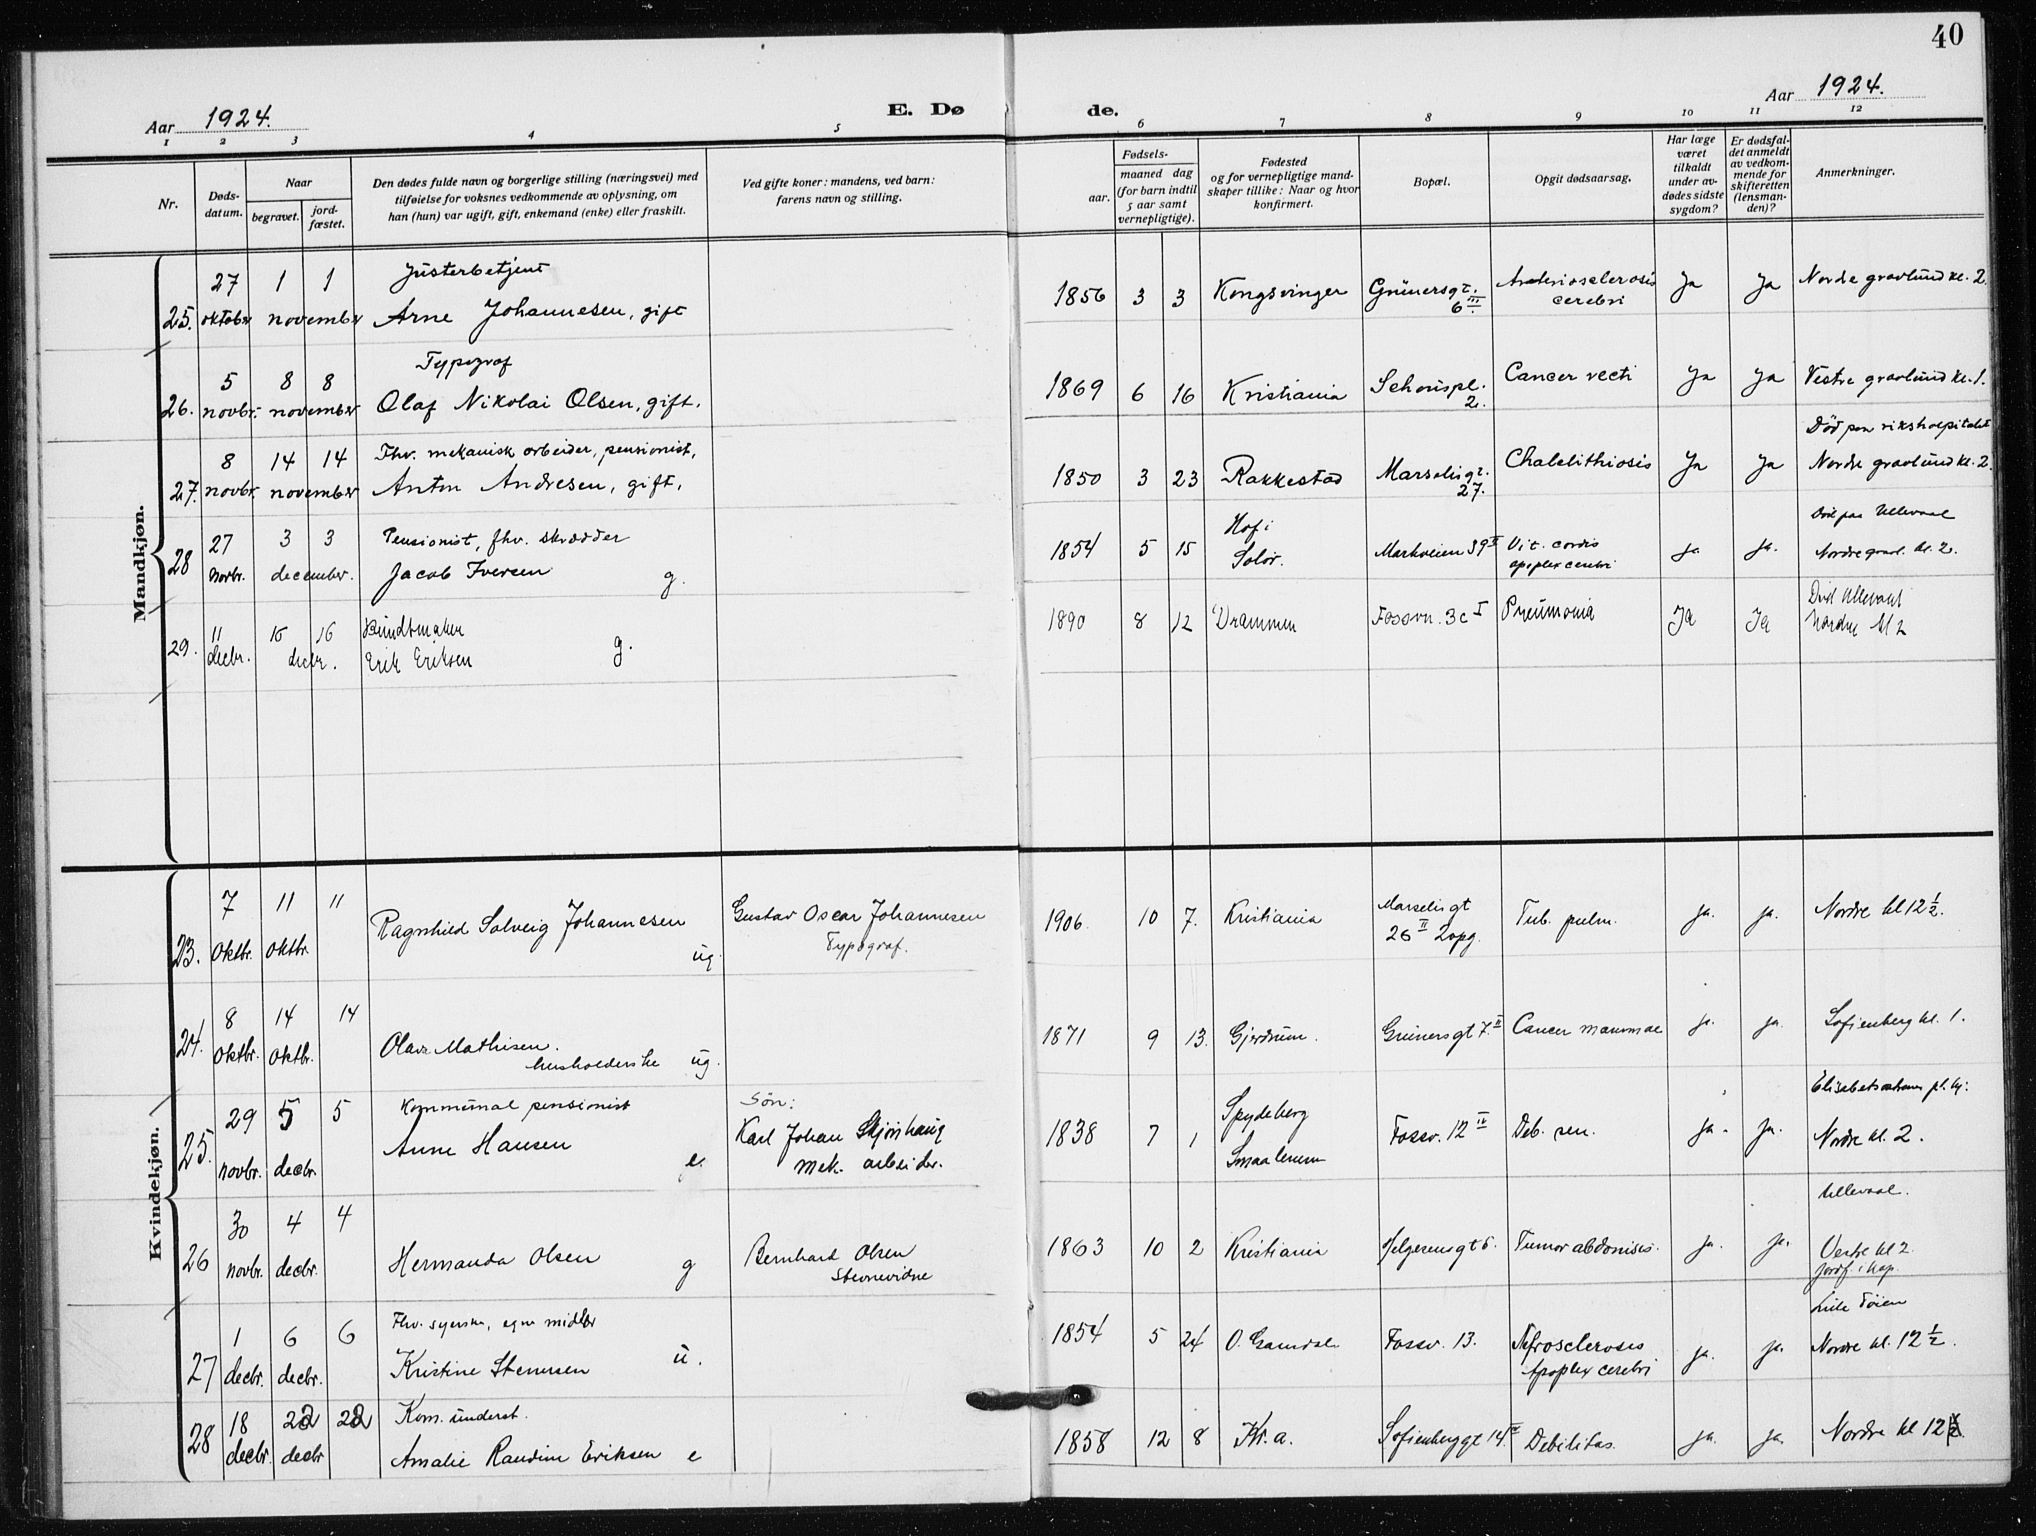 40
Aar 1924.
E. Dø
de.
Aar 1924.
1 2 3 4 5 6 7 8 9 10 11 12
Nr.
Døds-
datum.
Naar
begravet.
jord-
fæstet.
Den dødes fulde navn og borgerlige stilling (næringsvei) med
tilføielse for voksnes vedkommende av oplysning, om
han (hun) var ugift, gift, enkemand (enke) eller fraskilt.
Ved gifte koner: mandens, ved barn:
farens navn og stilling.
Fødsels-
aar.
maaned dag
(for barn indtil
5 aar samt
vernepligtige).
Fødested
og for vernepligtige mand-
skaper tillike: Naar og hvor
konfirmert.
Bopæl.
Opgit dødsaarsag.
Har læge
været
tilkaldt
under av-
dødes sidste
sygdom?
Er dødsfal-
det anmeldt
av vedkom-
mende for
skifteretten
(lensman-
den)?
Anmerkninger.
Mandkjøn.
27 1 1 Justerbetjent
25. oktober november Arne Johannesen, gift
1856 3 3 Kongsvinger Grünersgt. 6 III. Arteriosclerosis
cerebri Ja Ja Nordre gravlund kl. 2.
5 8 8 Typograf
26. novbr. november Olaf Nikolai Olsen, gift.
1869 6 16 Kristiania Schouspl. 2. Cancer recti Ja Ja Vestre gravlund kl. 1.
8 14 14 Fhv. mekanisk arbeider, pensionist,
27. novbr. november Anton Andresen, gift.
1850 3 23 Rakkestad Marselisgt. 27. Cholelithiosis Ja Ja Død paa rikshospitalet
Nordre gravlund kl. 2.
27 3 3 Pensionist, fhv. skrædder
28 novbr. december. Jacob Iversen g.
1854 5 15 Hof i
Solør. Markveien 39 II Vit. cordis
apoplex cerebri ja ja. Død paa Ullevaal
Nordre grav. kl. 2.
11 16 16 Buntmaker
29. decbr. decbr. Erik Eriksen g.
1890 8 12 Drammen Fossvn. 3c I Pneumonia Ja Ja Død Ullevaal
Nordre kl 2
Kvindekjøn.
7 11 11
23. oktbr. oktbr. Ragnhild Solveig Johannesen ug. Gustav Oscar Johannesen
Typograf.
1906 10 7. Kristiania Marselisgt
26 II 2opg. Tub. pulm. ja. ja. Nordre kl 12 1/2.
8 14 14
24. oktbr. oktbr. Olava Mathisen.
husholderske ug.
1871 9 13. Gjerdrum. Grünersgt 7. II Cancer mammae ja. ja. Sofienberg kl. 1.
29 5 5 Kommunal pensionist
25. novbr. decbr. Anne Hansen e. Søn:
Karl Johan Skjønhaug
mek. arbeider.
1838 7 1 Spydeberg
Smaalenene Fossv. 12 IV Deb. sen. ja. ja. Nordre kl. 2.
30 4 4
26 novbr. decbr. Hermanda Olsen g Bernhard Olsen
Stevnevidne
1863 10 2 Kristiania Helgesensgt 5. Tumor abdominis. ja. ja. Ullevaal.
Vestre kl 2.
Jordf. i kap.
1 6 6 Fhv. syerske, egne midler
27 decbr. decbr. Kristine Stenersen u.
1854 5 24 Ø. Gausdal Fossv. 13. Nefrosclerosis
Apoplex cerebri ja. ja. Lille Tøien
Nordre kl. 12 1/2.
18 22 22 Kom. underst.
28 decbr. decbr Amalie Randine Eriksen e
1858 12 8 Kr.a. Sofienberggt 14 IV Debilitas. ja. ja. Nordre kl 12